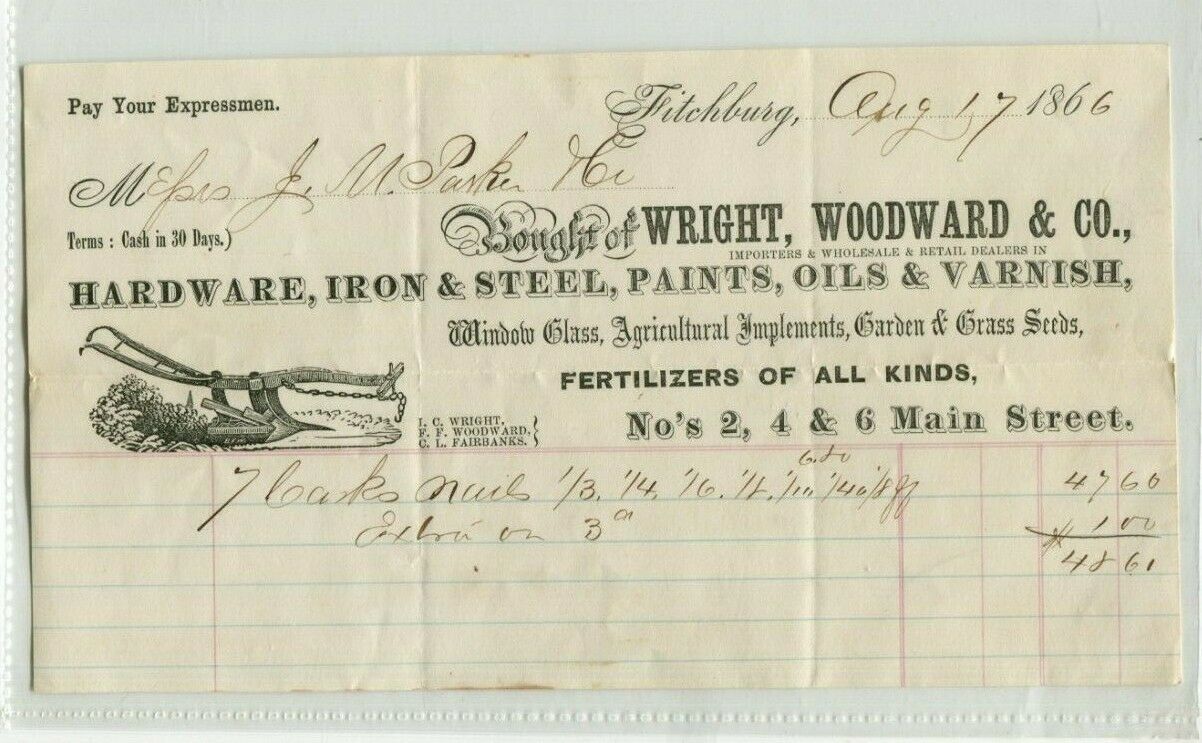 Pay Your Expressmen.
Fitchburg, Aug 17 1866
Messrs J. M. Parker & Co
Terms : Cash in 30 Days.)
Bought of WRIGHT, WOODWARD & CO.,
IMPORTERS & WHOLESALE & RETAIL DEALERS IN
HARDWARE, IRON & STEEL, PAINTS, OILS & VARNISH,
Window Glass, Agricultural Implements, Garden & Grass Seeds,
FERTILIZERS OF ALL KINDS,
I. C. WRIGHT,
F. F. WOODWARD,
C. L. FAIRBANKS.
No's 2, 4 & 6 Main Street.
6.80
7 Casks Nails 1/3. 1/4. 1/6. 1/8. 1/10 1/40 47 60
Extra on 3d 1 00
$ 48 61